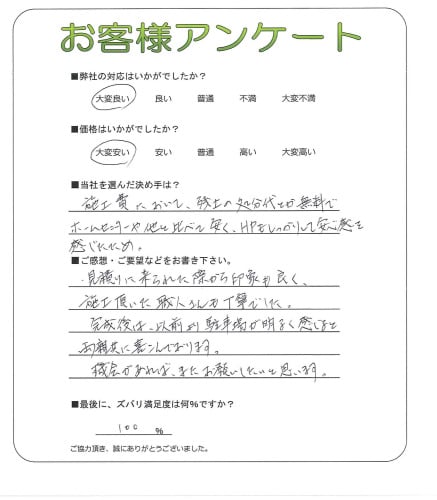 お客様アンケート
■弊社の対応はいかがでしたか?
大変良い 良い 普通 不満 大変不満
■価格はいかがでしたか?
大変安い 安い 普通 高い 大変高い
■当社を選んだ決め手は?
施工費において、残土の処分代とか無料で
ホームセンターや他と比べて安く、HPもしっかりして安心感を
感じたため。
■ご感想・ご要望などをお書き下さい。
・見積りに来られた際から印象も良く、
施工頂いた職人さんも丁寧でした。
完成後は、以前より駐車場が明るく感じると
両親共に喜こんでおります。
機会があれば、またお願いしたいと思います。
■最後に、ズバリ満足度は何%ですか?
100 %
ご協力頂き、誠にありがとうございました。